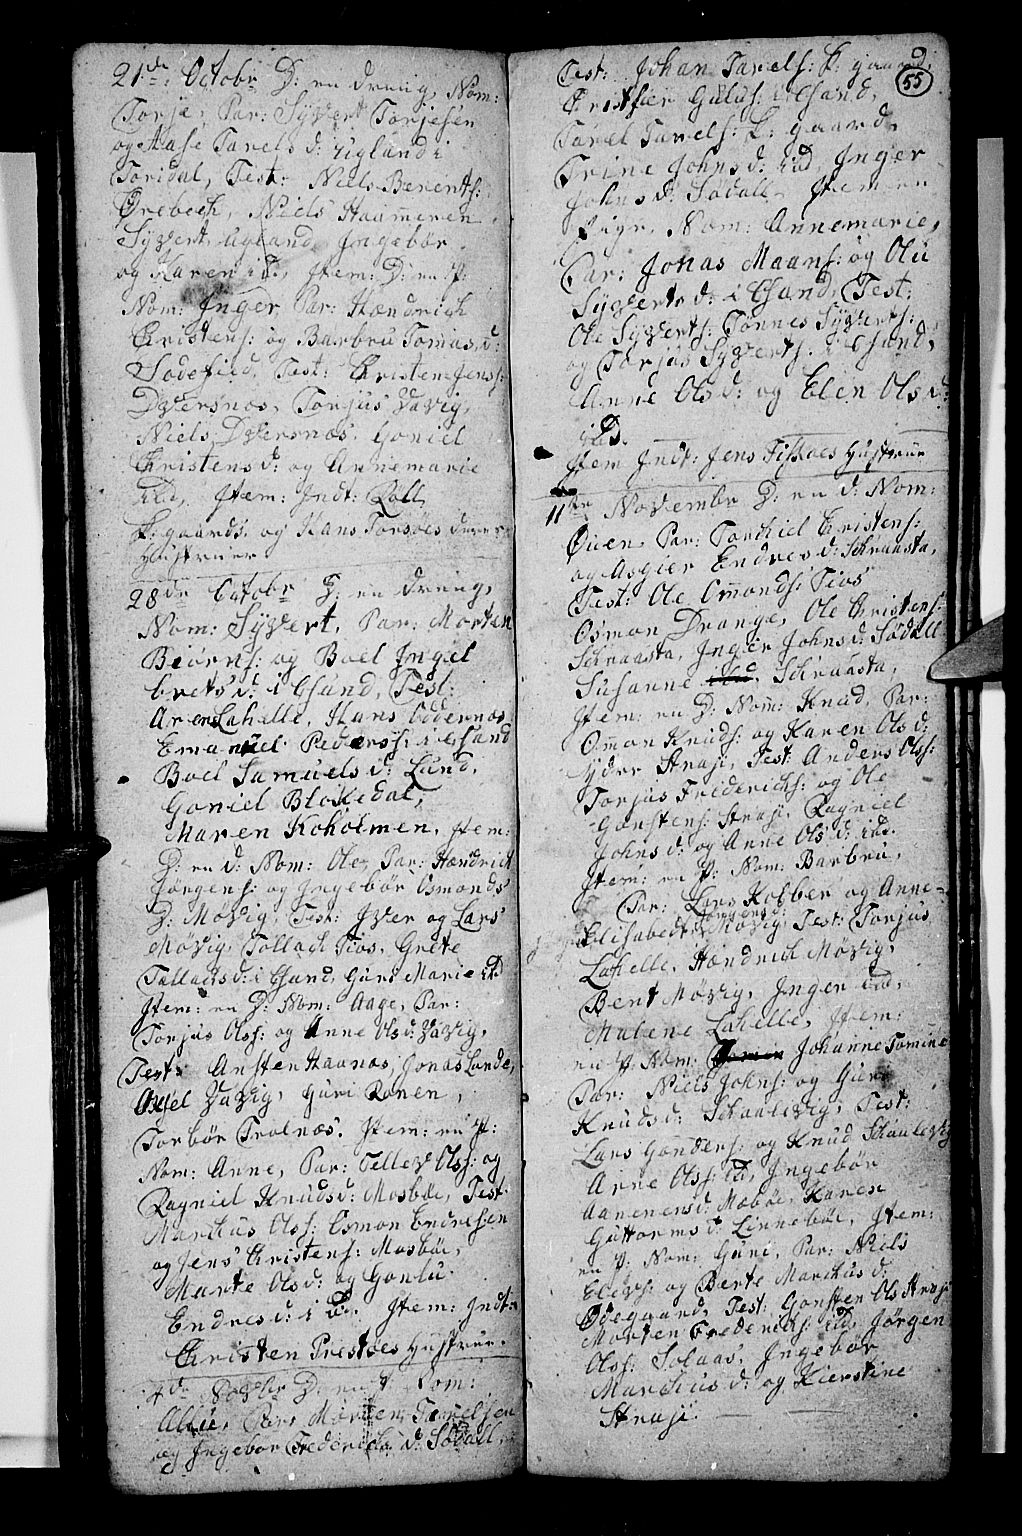 21de Octobr D: en dreng, Nom:
Torje, Par: Syvert Torjesen
og Aase Tarels d: Ugland i
Toridal, Test: Niels Berents:
Ørebech, Niels Haameren,
Syvert Ugland, Ingebør
og Karen ibd, Item: D: en P:
Nom: Inger, Par: Hændrich
Christens: og Barbru Tomas d:
Test: Christen Jens:
Dversnes, Torjus Vavig,
Niels Dversnes, Goniel
Christens d: og Annemarie
ibd, Item: Indt:
K:gaards, og Hans Torsøes deres
Hustruer
28de Octobr D: en dreng,
Nom: Syvert, Par: Morten
Beiørns: og Boel Ingel
brets d: i Chsand, Test:
Aren Lahelle, Hans Oddernes
Emanuel Peders: i Chsand
Boel Samuels d: Lund,
Goniel Blokedal,
Maren Koholmen, Item:
D: en d: Nom: Ole, Par: Hændrich
Jørgens: og Ingebør Osmonds
D: Møvig, Test: Iver og Lars
Møvig, Tollach Fios, Grete
Tallachs d: i Chsand, Guri Marie ibd
Item: en D: Nom: Aage, Par:
Torjus Ols: og Anne Ols d: Vavig,
Test: Ansten Haanes, Jonas Lunde,
Axel Vavig, Guri Ronen,
Torbør Trolnes. Item: en P:
Nom: Anne, Par: Tellev Ols: og
Ragniel Knuds d: Mosbøe, Test:
Marcus Ols: Osmon Endresen
og Jens Christens: Mosbøe,
Marte Ols d: og Gonlu
Endres d: ibd. Item: Indt:
Christen Prestøes Hustrue.
4de Novbr D: en P Nom:
Allu, Par: Morten Tarelsen
og Ingebor Frederichs d: Sødall,
55
Test: Johan Tarels: K:gaard,
Christfier Guluf: Chsand,
Tarel Tarels: K:gaard,
Trine Johns d: ibd, Inger
Johns d: Sødall, Item en
Pige, Nom: Annemarie,
Par: Jonas Maans: og Olu
Syverts d: i Chsand, Test:
Ole Syverts: Tønnes Syverts:
og Torjus Syverts: i Chsand,
Anne Ols d: og Elen Ols d:
ibd.
Item Indt: Jens Fiskaaes Hustrue
11te Novembr D: en d: Nom:
Øuen, Par: Torkiel Christens:
og Asgier Endres d: Schraasta,
Test: Ole Omonds: Fios
Osmon Drange, Ole Christens:
Schraasta, Inger Johns d: Sødall
Susanne Schraasta,
Item: en D: Nom: Knud, Par:
Omon Knuds: og Karen Ols d:
Ydre Straji, Test: Anders Ols:
Torjus Friderichs: og Ole
Gonstens: Straji, Ragniel
Johns d: og Anne Ols d: ibd.
Item: en P: Nom: Barbru,
Par: Lars Kobber og Anne-
Elisabeth Jørgens d: Møvig, Test: Torjus
Lahelle, Hændrich Møvig,
Bent Møvig, Inger ibd,
Malene Lahelle, Item:
en P Nom: Johanne Tomine
Par: Niels Johns: og Guru
Knuds d: Schaalevig, Test:
Lars Gonders: og Knud Schaalevig
Arne Ols: ibd, Ingebør
Aanenens d: Møbøe, Karen
Guttorms d: Linnebøe, Item:
en P Nom: Guri, Par: Niels
Elevs: og Berte Marchus d:
Ødegaard, Test: Gonsten Ols Straji
Morten Frederichs: ibd, Jørgen
Ols: Solaas, Ingebør
Marchus d: og Kierstine
Straji.